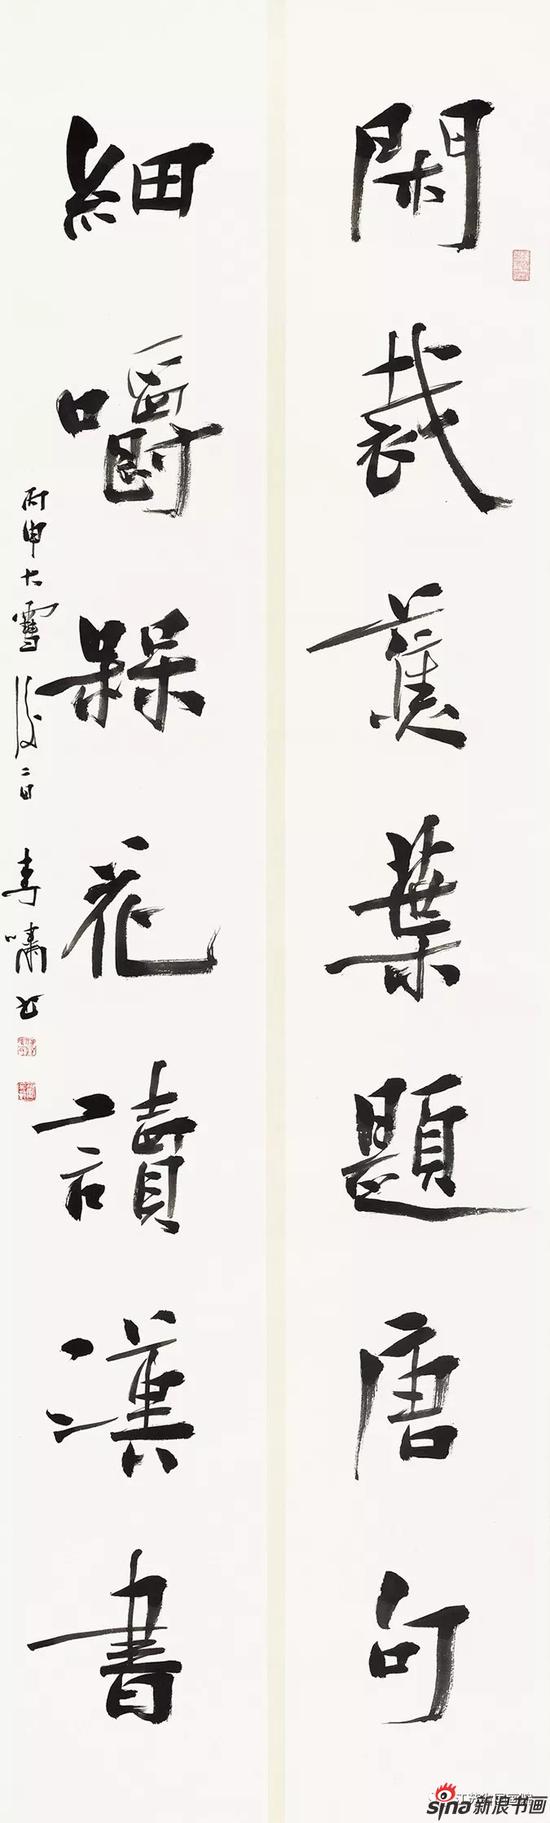 閑裁蕉葉題唐句
細嚼槑花讀漢書
丙申大雪後二日 李嘯书
sina新浪书画